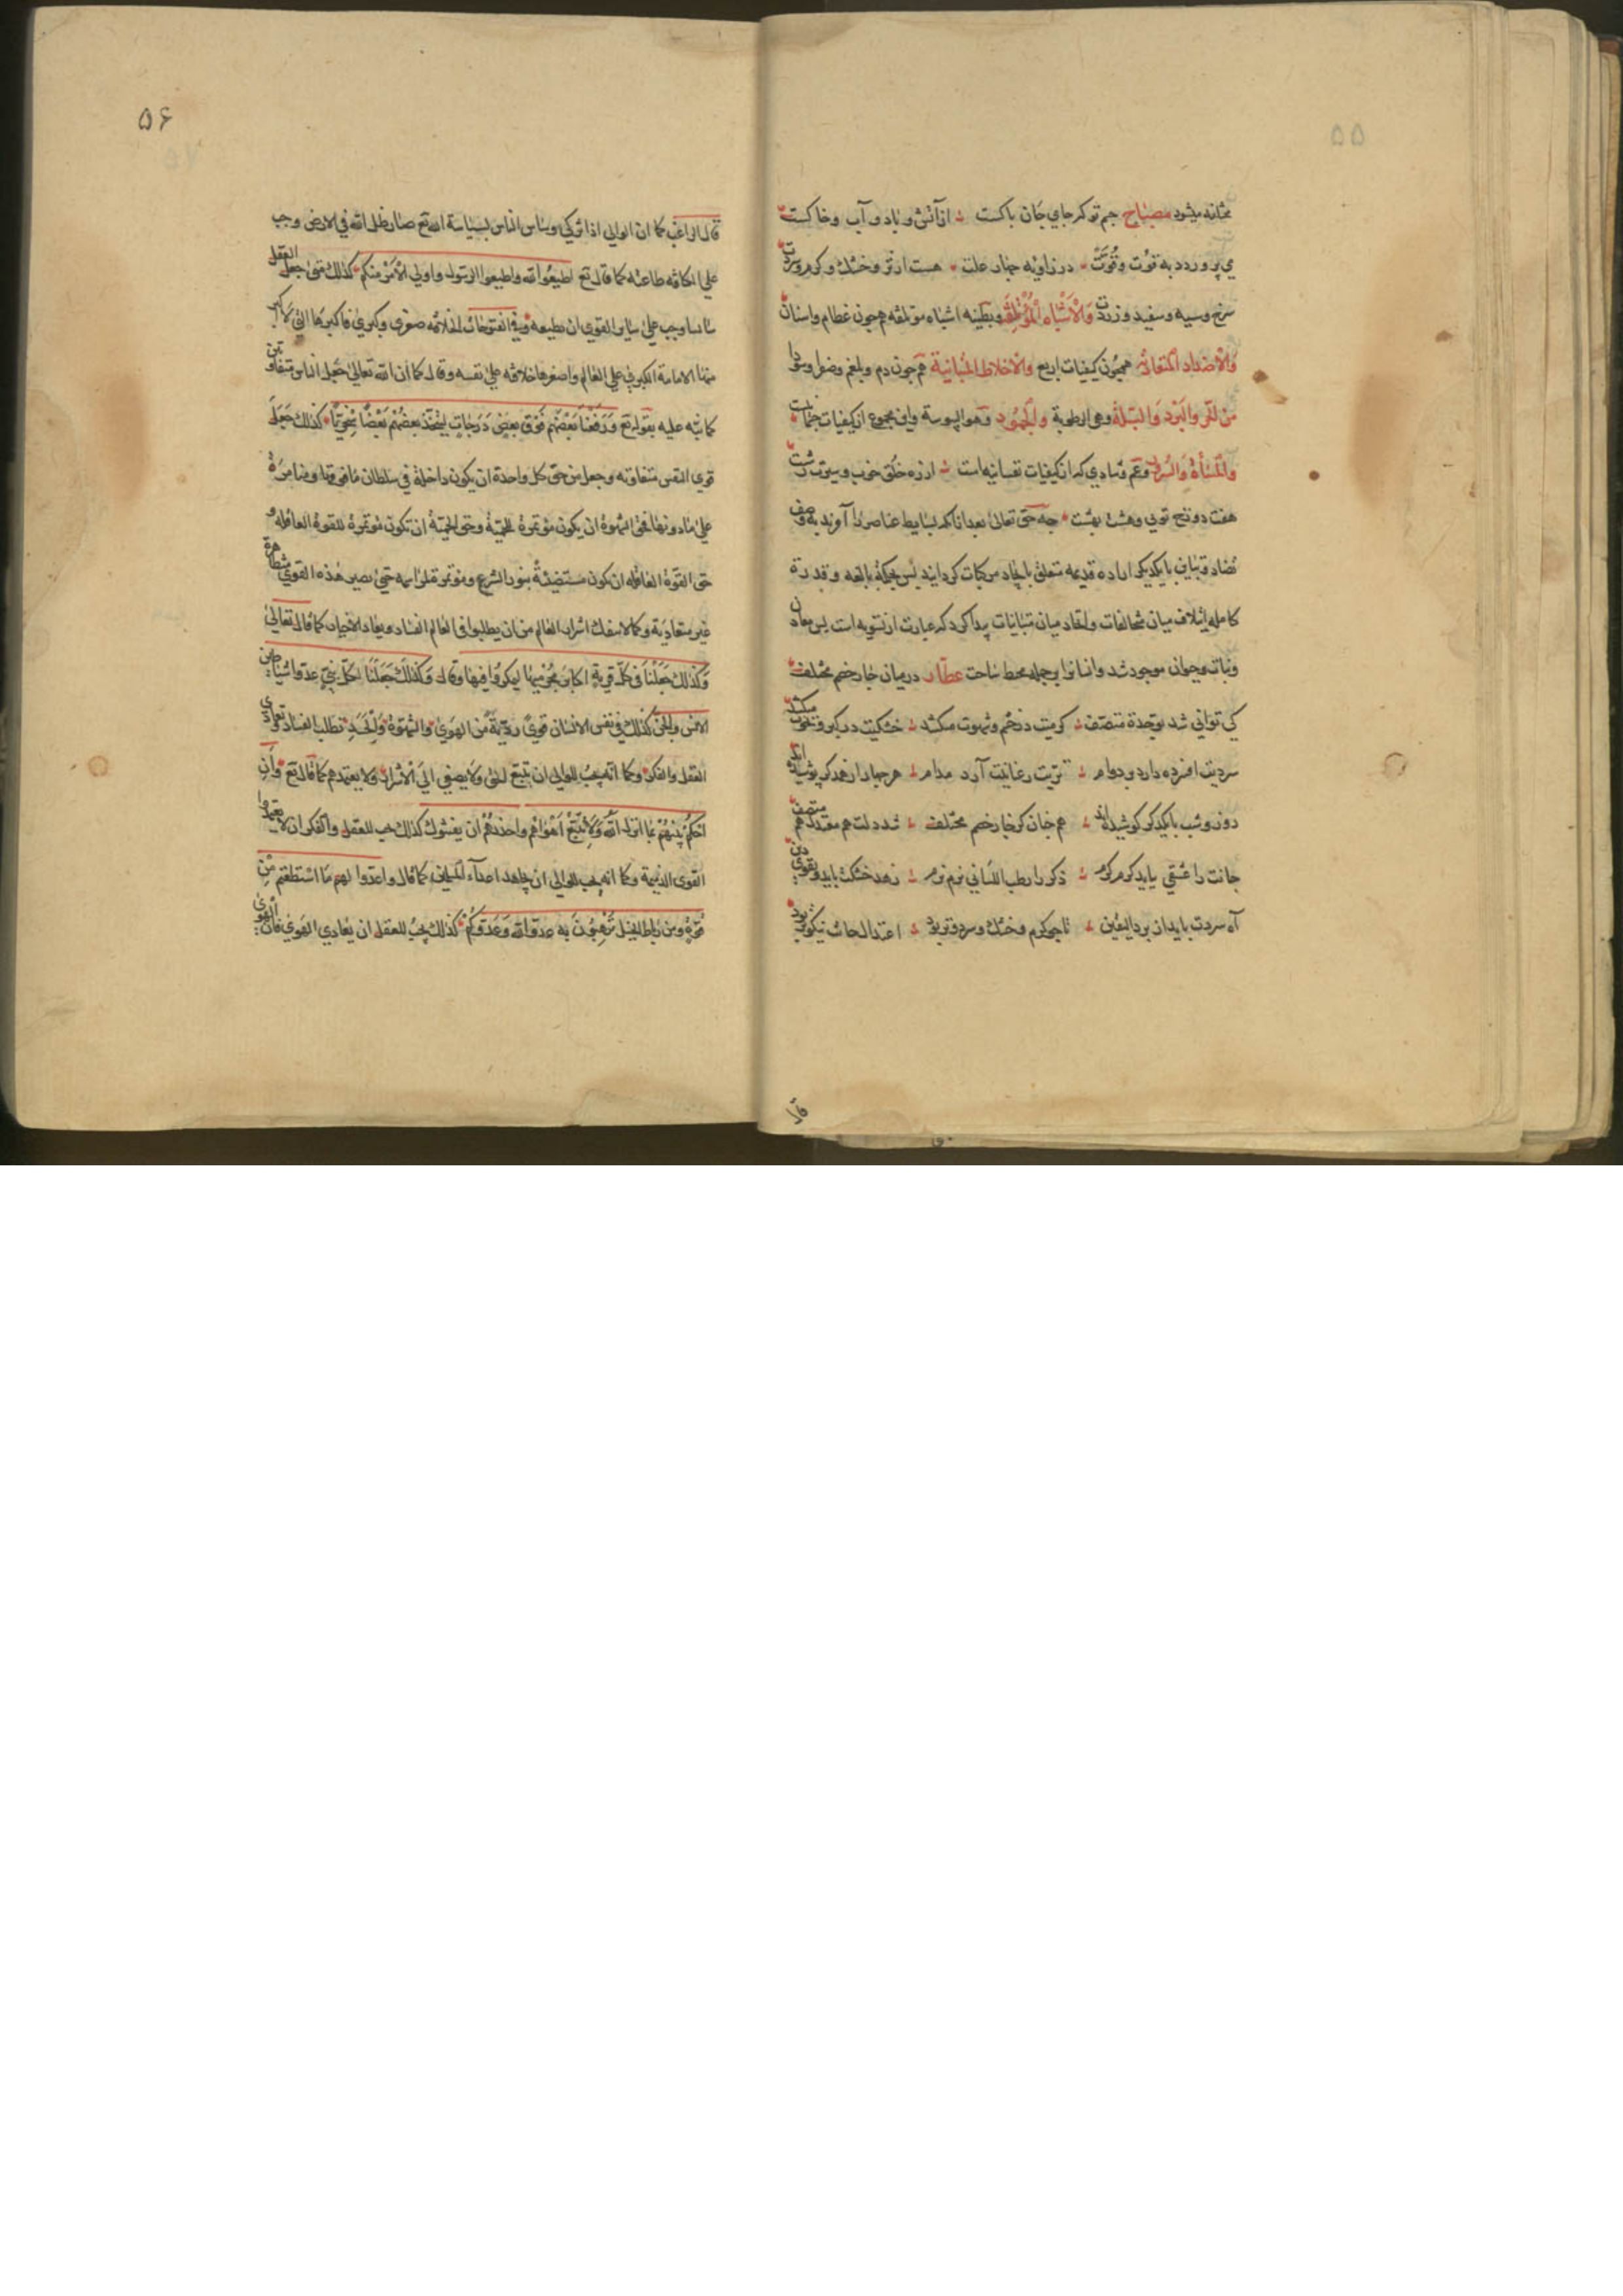 ۵۵
مختلفه میشود مصباح جم تو کر جای جان پاکست از آتش و باد و آب و خاکست
می پرورد به قوت و قُوّت در زاویه جهار علت هست از تر و خشک و کرم و سردت
سرخ و سیه و سفید و زردت وَالْاَشْبَاهِ الْمُؤْتَلِفَةِ و بطینه اشباه موتلفه همچون عظام و اسنان
وَالْاَضْدَادِ الْمُتَعَادِیَةِ همچون کیفیات اربع وَالْاَخْلَاطِ الْمُتَبَایِنَةِ همچون دم و بلغم و صفرا و سودا
مِنَ الْحَرِّ وَالْبَرْدِ وَالْبَلَّةِ وهی الرطوبة وَالْجُمُودِ وهو الیبوسة و این مجموع از کیفیات
وَالْمَسَاءَةِ وَالسُّرُورِ و غم و شادی که از کیفیات نفسانیه است از ره خلق خوب و سیرت زشت
هفت دوزخ تویی و هشت بهشت چه حق تعالی بعد از آنکه بسایط عناصر را آفرید به وصف
تضاد و تباین با یکدیکر اراده قدیمه متعلق بایجاد مرکبات کردانید پس بحکمة بالغه و قدرة
کامله ایتلاف میان مخالفات و اتحاد میان متباینات پیدا کرد که عبارت از تسویه است پس معادن
و نبات و حیوان موجود شد و انسانرا بر جمله محیط ساخت عطّار در میان چار خصم مختلف
کی توانی شد بوحدة متصف کرمیت در خشم و شهوت میکشد خشکیت در کبر و نخوت میکشد
سردیت افسرده دارد بر دوام تریت رعنائیت آرد مدام هر چهار از همدکر پوشیده اند
روز و شب با یکدکر کوشیده اند هم جان کر چار خصم مختلف شد دلت هم معتدل هم متصف
جانت را عشقی بباید کرم کرم ذکر را رطب اللسانی نرم نرم زهد خشکت باید و تقوی دین
آه سردت باید از برد الیقین تا چو کرم و خشک و سرد و تر بود اعتدال جانت نیکوتر بود
قال
۵۶
قال الراغب کما ان الوالی اذا تزکی وساس الناس بسیاسة الله تع صار ظل الله فی الارض وجب
علی الکافه طاعته کما قال تع اطیعوا الله واطیعوا الرسول واولی الاَمْر منکم کذلک متی جعل العقل
سائسا وجب علی سایر القوی ان تطیعه وفی الفتوحات الخلافه صغری وکبری فاکبرها التی لا اکبر
منها الامامة الکبری علی العالم واصغرها خلافته علی نفسه وقال کما ان الله تعالی جعل الناس متفاوتین
کما نبّه علیه بقوله تع وَرَفَعْنَا بَعْضَهُم فَوْقَ بَعْضٍ دَرَجَاتٍ لِیَتَّخِذَ بَعْضُهُمْ بَعْضًا سُخْرِیًّا کذلک جَعَلَ
قوی النفس متفاوته وجعل من حق کل واحدة ان یکون داخلة فی سلطان ما فوقها ومتامرةً
علی ما دونها فحق الشهوة ان یکون مؤتمرة للحمیّة وحق الحمیّة ان تکون مؤتمرة للقوة العاقله و
حق القوّة العاقله ان یکون مستضیئةً بنور الشرع ومؤتمرة لمراسمه حتی تصیر هذه القوی متظاهرة
غیر متعادیة وکما لا ینفک اشرار العالم من ان یطلبوا فی العالم الفساد ویعاد الاخیار کما قال تعالی
وَکَذلکَ جَعَلْنَا فی کُلّ قَریةٍ اکَابِرَ مُجْرِمِیهَا لیَمکروا فِیهَا وقال وَکَذلکَ جَعَلْنَا لکلّ نَبِیٍّ عدوّا شیاطین
الانس والجن کذلک فی نفس الانسان قویً ردیّةً من الهَوی والشهوة والحَسَد تطلب الفساد وتعادی
العقل والفکر وکما انّه یجب للوالی ان یتبع الحق ولا یصغی الی الاشرار ولا یعتمدهم کما قال تع وَاَنِ
احْکُمْ بَیْنَهُمْ بِمَا اَنْزَلَ اللهُ وَلَا تَتَّبِعْ اَهْوَاءَهُم وَاحْذَرْهُمْ ان یفتنوک کذلک یجب للعقل والفکر ان لا یعتمدوا
القوی الذمیمة وکما انه یجب للوالی ان یجاهد اعداء المسلمین کما قال واعدّوا لهم مَا اسْتَطعْتم مّن
قُوَّةٍ ومن رِبَاطِ الخیل تُرْهِبُونَ بِهِ عَدوَّ الله وَعَدوَّکُمْ کذلک یجبُ للعقل ان یعادی الهَوی فانّ الهوی